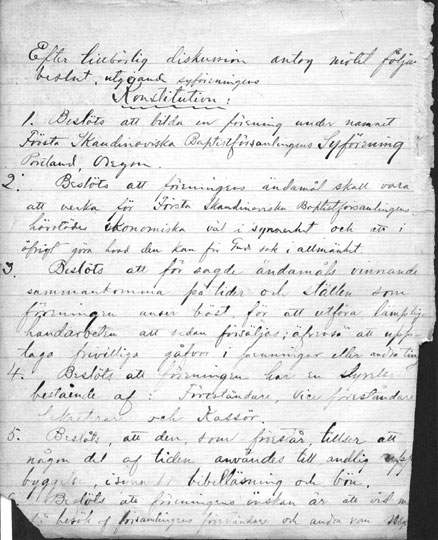 Efter tillbörlig diskussion antog mötet följan
beslut, utgörande syföreningens
Konstitution:
1. Beslöts att bilda en förening under namnet
Första Skandinaviska Baptistförsamlingens Syförening
Portland, Oregon.
2. Beslöts att föreningens ändamål skall vara
att verka för Första Skandinaviska Baptistförsamlingens
ekonomiska väl i synnerhet och att i
öfrigt göra hvad den kan för Guds sak i allmänhet.
3. Beslöts att för sagde ändamåls vinnande
sammankomma på tider och ställen som
föreningen anser bäst för att utföra lämpliga
handarbeten att sedan försäljas; äfvenså att upp-
taga frivilliga gåfvor i penningar eller andra ting
4. Beslöts att föreningen har en Styrelse
bestående af: Föreståndare, Vice föreståndare
Sekretrar och Kassör.
5. Beslöts, att den, som förestår, tillser att
någon del af tiden användes till andlig upp
byggelse, bibelläsning och bön.
Beslöts att föreningens önskan är att vid
besök af församlingens föreståndare och andra